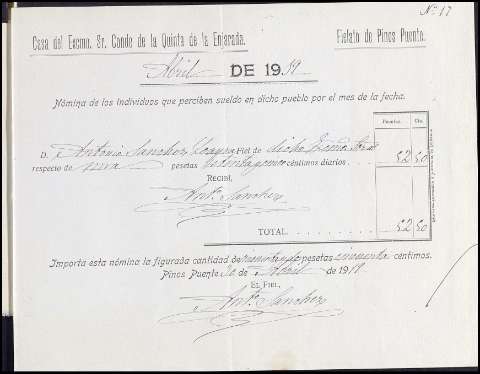 Nº 17
Casa del Excmo. Sr. Conde de la Quinta de la Enjarada.
Fielato de Pinos Puente.
Abril DE 19
Nómina de los individuos que perciben sueldo en dicho pueblo por el mes de la fecha.
Pesetas. Cts.
D. Antonio Sanchez Fiel de dicho
respecto de una pesetas céntimos diarios 52 50
RECIBÍ,
Antº Sanchez
TOTAL 52 50
Importa esta nómina la figurada cantidad de pesetas cincuenta céntimos.
Pinos Puente 30 de Abril de 19
EL FIEL,
Antº Sanchez